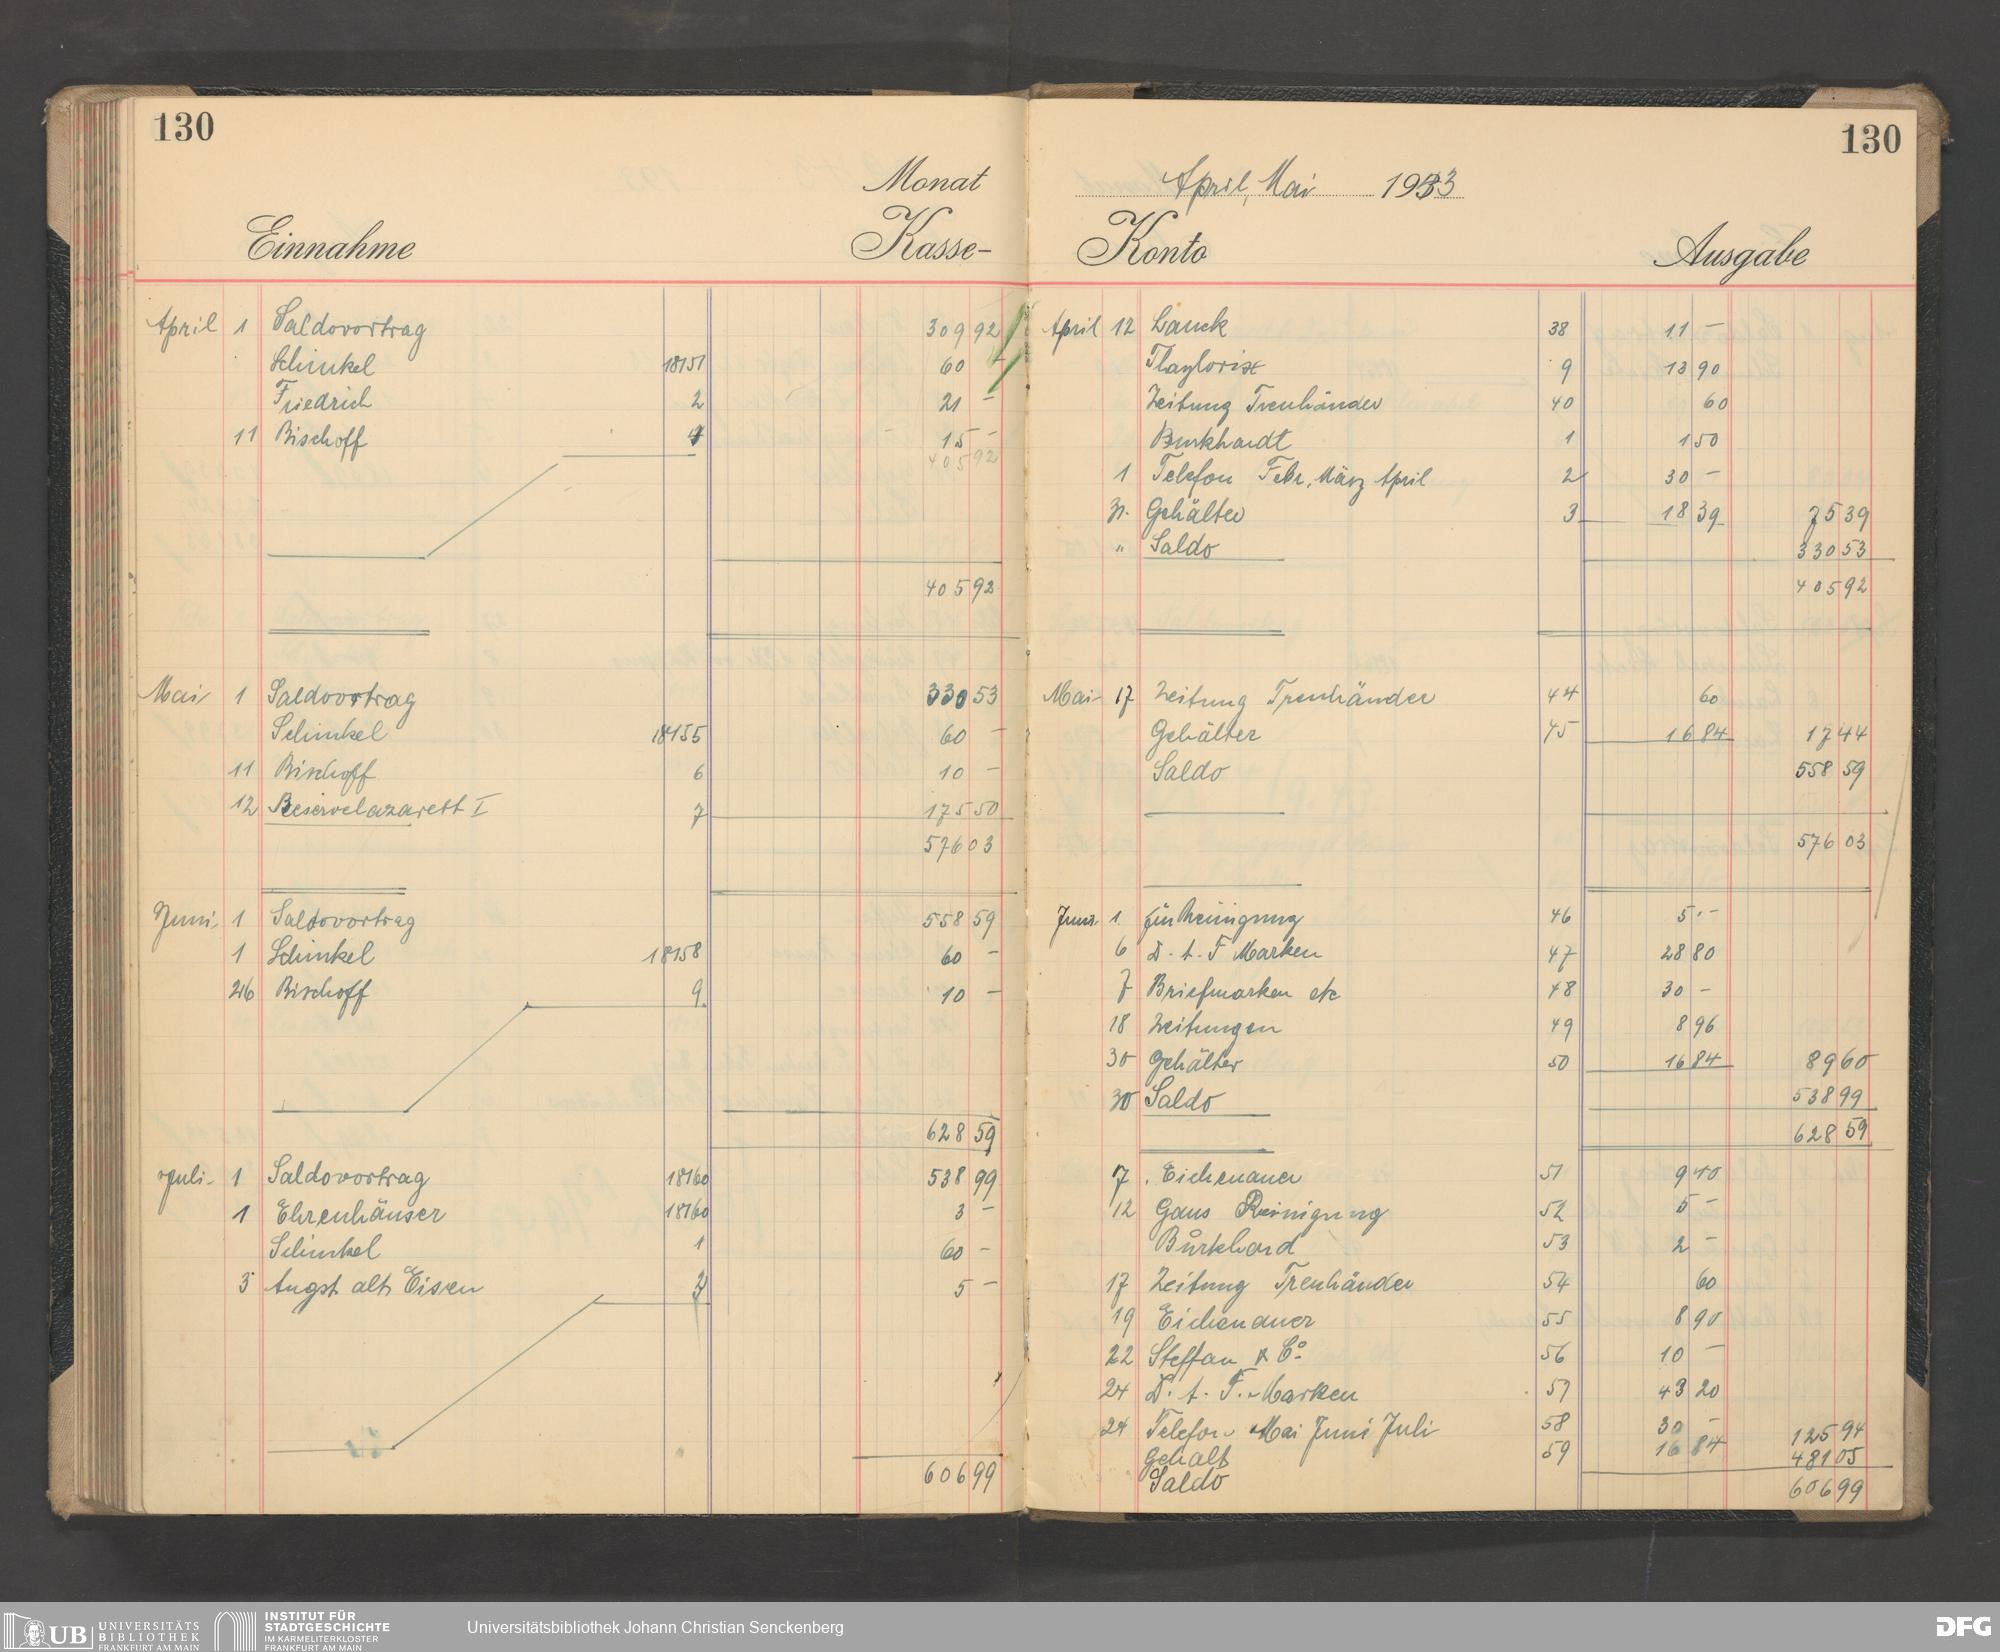 130
Monat
Einnahme Kasse-
April 1 Saldovortrag 309 92
Schinkel 18151 60 -
Friedrich 2 21 -
11 Bischoff 4 15 -
405 92
405 92
Mai 1 Saldovortrag 330 53
Schinkel 18155 60 -
11 Bischoff 6 10 -
12 Reservelazarett I 7 175 50
576 03
Juni 1 Saldovortrag 558 59
1 Schinkel 18158 60 -
26 Bischoff 9 10 -
628 59
Juli 1 Saldovortrag 18160 538 99
1 Ehrenhäuser 18160 3 -
Schinkel 1 60 -
3 Angst alt Eisen 2 5 -
606 99
130
April, Mai 1943
Konto Ausgabe
April 12 Lauck 38 11 -
Taylorix 9 13 90
Zeitung Treuhänder 40 60
Burkhardt 1 1 50
1 Telefon Febr, März April 2 30 -
31. Gehälter 3 18 39 75 39
" Saldo 330 53
405 92
Mai 17 Zeitung Treuhänder 44 60
Gehälter 45 16 84 17 44
Saldo 558 59
576 03
Juni 1 für Reinigung 46 5.-
6 D. A. F Marken 47 28 80
7 Briefmarken etc 48 30 -
18 Zeitungen 49 8 96
30 Gehälter 50 16 84 89 60
30 Saldo 538 99
628 59
7 Eichenauer 51 9 40
12 Gans Reinigung 52 5 -
Burkhard 53 2 -
17 Zeitung Treuhänder 54 60
19 Eichenauer 55 8 90
22 Steffan & Co. 56 10 -
24 D. A. F. Marken 57 43 20
24 Telefon Mai Juni Juli 58 30 - 125 94
Gehalt 59 16 84 481 05
Saldo 606 99
UB UNIVERSITÄTS
BIBLIOTHEK
FRANKFURT AM MAIN
INSTITUT FÜR
STADTGESCHICHTE
IM KARMELITERKLOSTER
FRANKFURT AM MAIN
Universitätsbibliothek Johann Christian Senckenberg
DFG